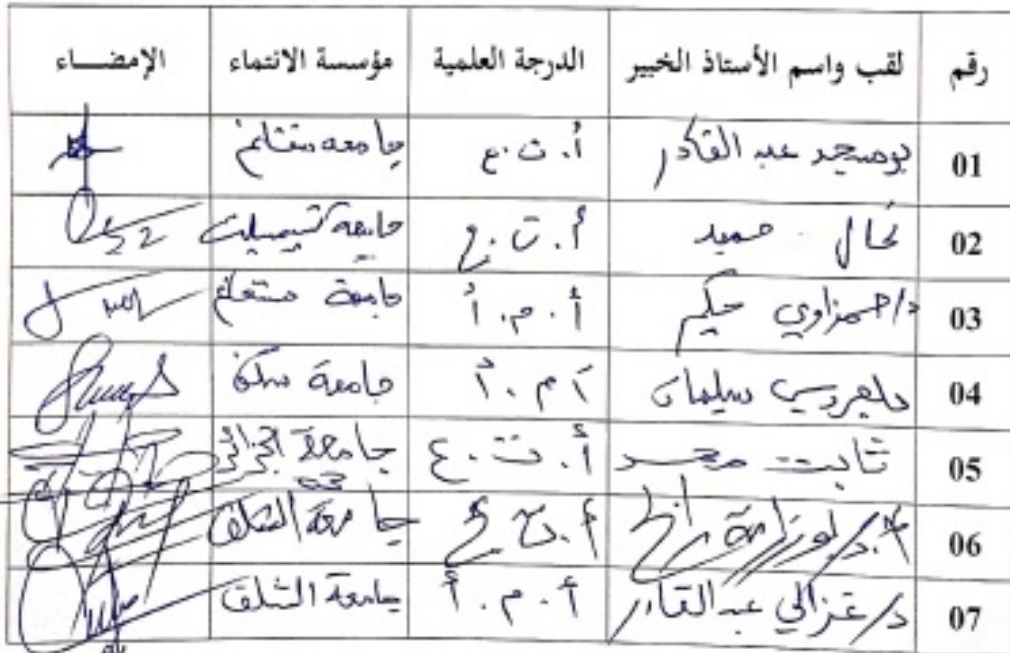 رقم لقب واسم الأستاذ الخبير الدرجة العلمية مؤسسة الانتماء الإمضــاء
01 بومسجد عبد القادر أ. ت. ع جامعة مستغانم
02 نحال حميد أ. ت. ع جامعة تيسمسيلت
03 د/حمزاوي حكيم أ. م. أ جامعة مستغانم
04 بلعروسي سليمان أ م. أ جامعة
05 ثابت محمد أ. ت. ع جامعة الجزائر 03
06 أ.د/بوزريبة رابح أ. ت ع جامعة الشلف
07 د/غزالي عبد القادر أ. م. أ جامعة الشلف